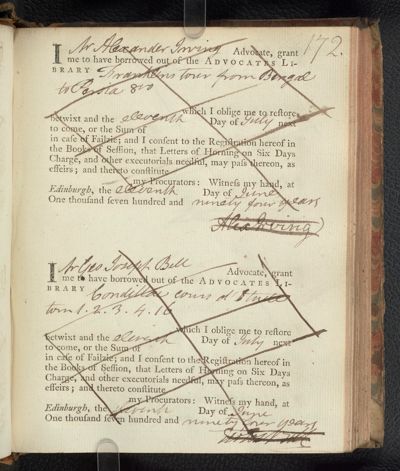 172.
I Mr Alexander Irving Advocate, grant
me to have borrowed out of the ADVOCATES LI-
BRARY Franklins tour from Bengal
to Persia 8vo
which I oblige me to restore
betwixt and the eleventh Day of July next
to come, or the Sum of
in case of Failzie; and I consent to the Registration hereof in
the Books of Session, that Letters of Horning on Six Days
Charge, and other executorials needful, may pass thereon, as
effeirs; and thereto constitute
my Procurators: Witness my hand, at
Edinburgh, the eleventh Day of June
One thousand seven hundred and ninety four years
Alex Irving
I Mr Geo Joseph Bell Advocate, grant
me to have borrowed out of the ADVOCATES LI-
BRARY Condillac cours d'Etude
tom 1. 2. 3. 4. 16
which I oblige me to restore
betwixt and the eleventh Day of July next
to come, or the Sum of
in case of Failzie; and I consent to the Registration hereof in
the Books of Session, that Letters of Horning on Six Days
Charge, and other executorials needful, may pass thereon, as
effeirs; and thereto constitute
my Procurators: Witness my hand, at
Edinburgh, the eleventh Day of June
One thousand seven hundred and ninety four years